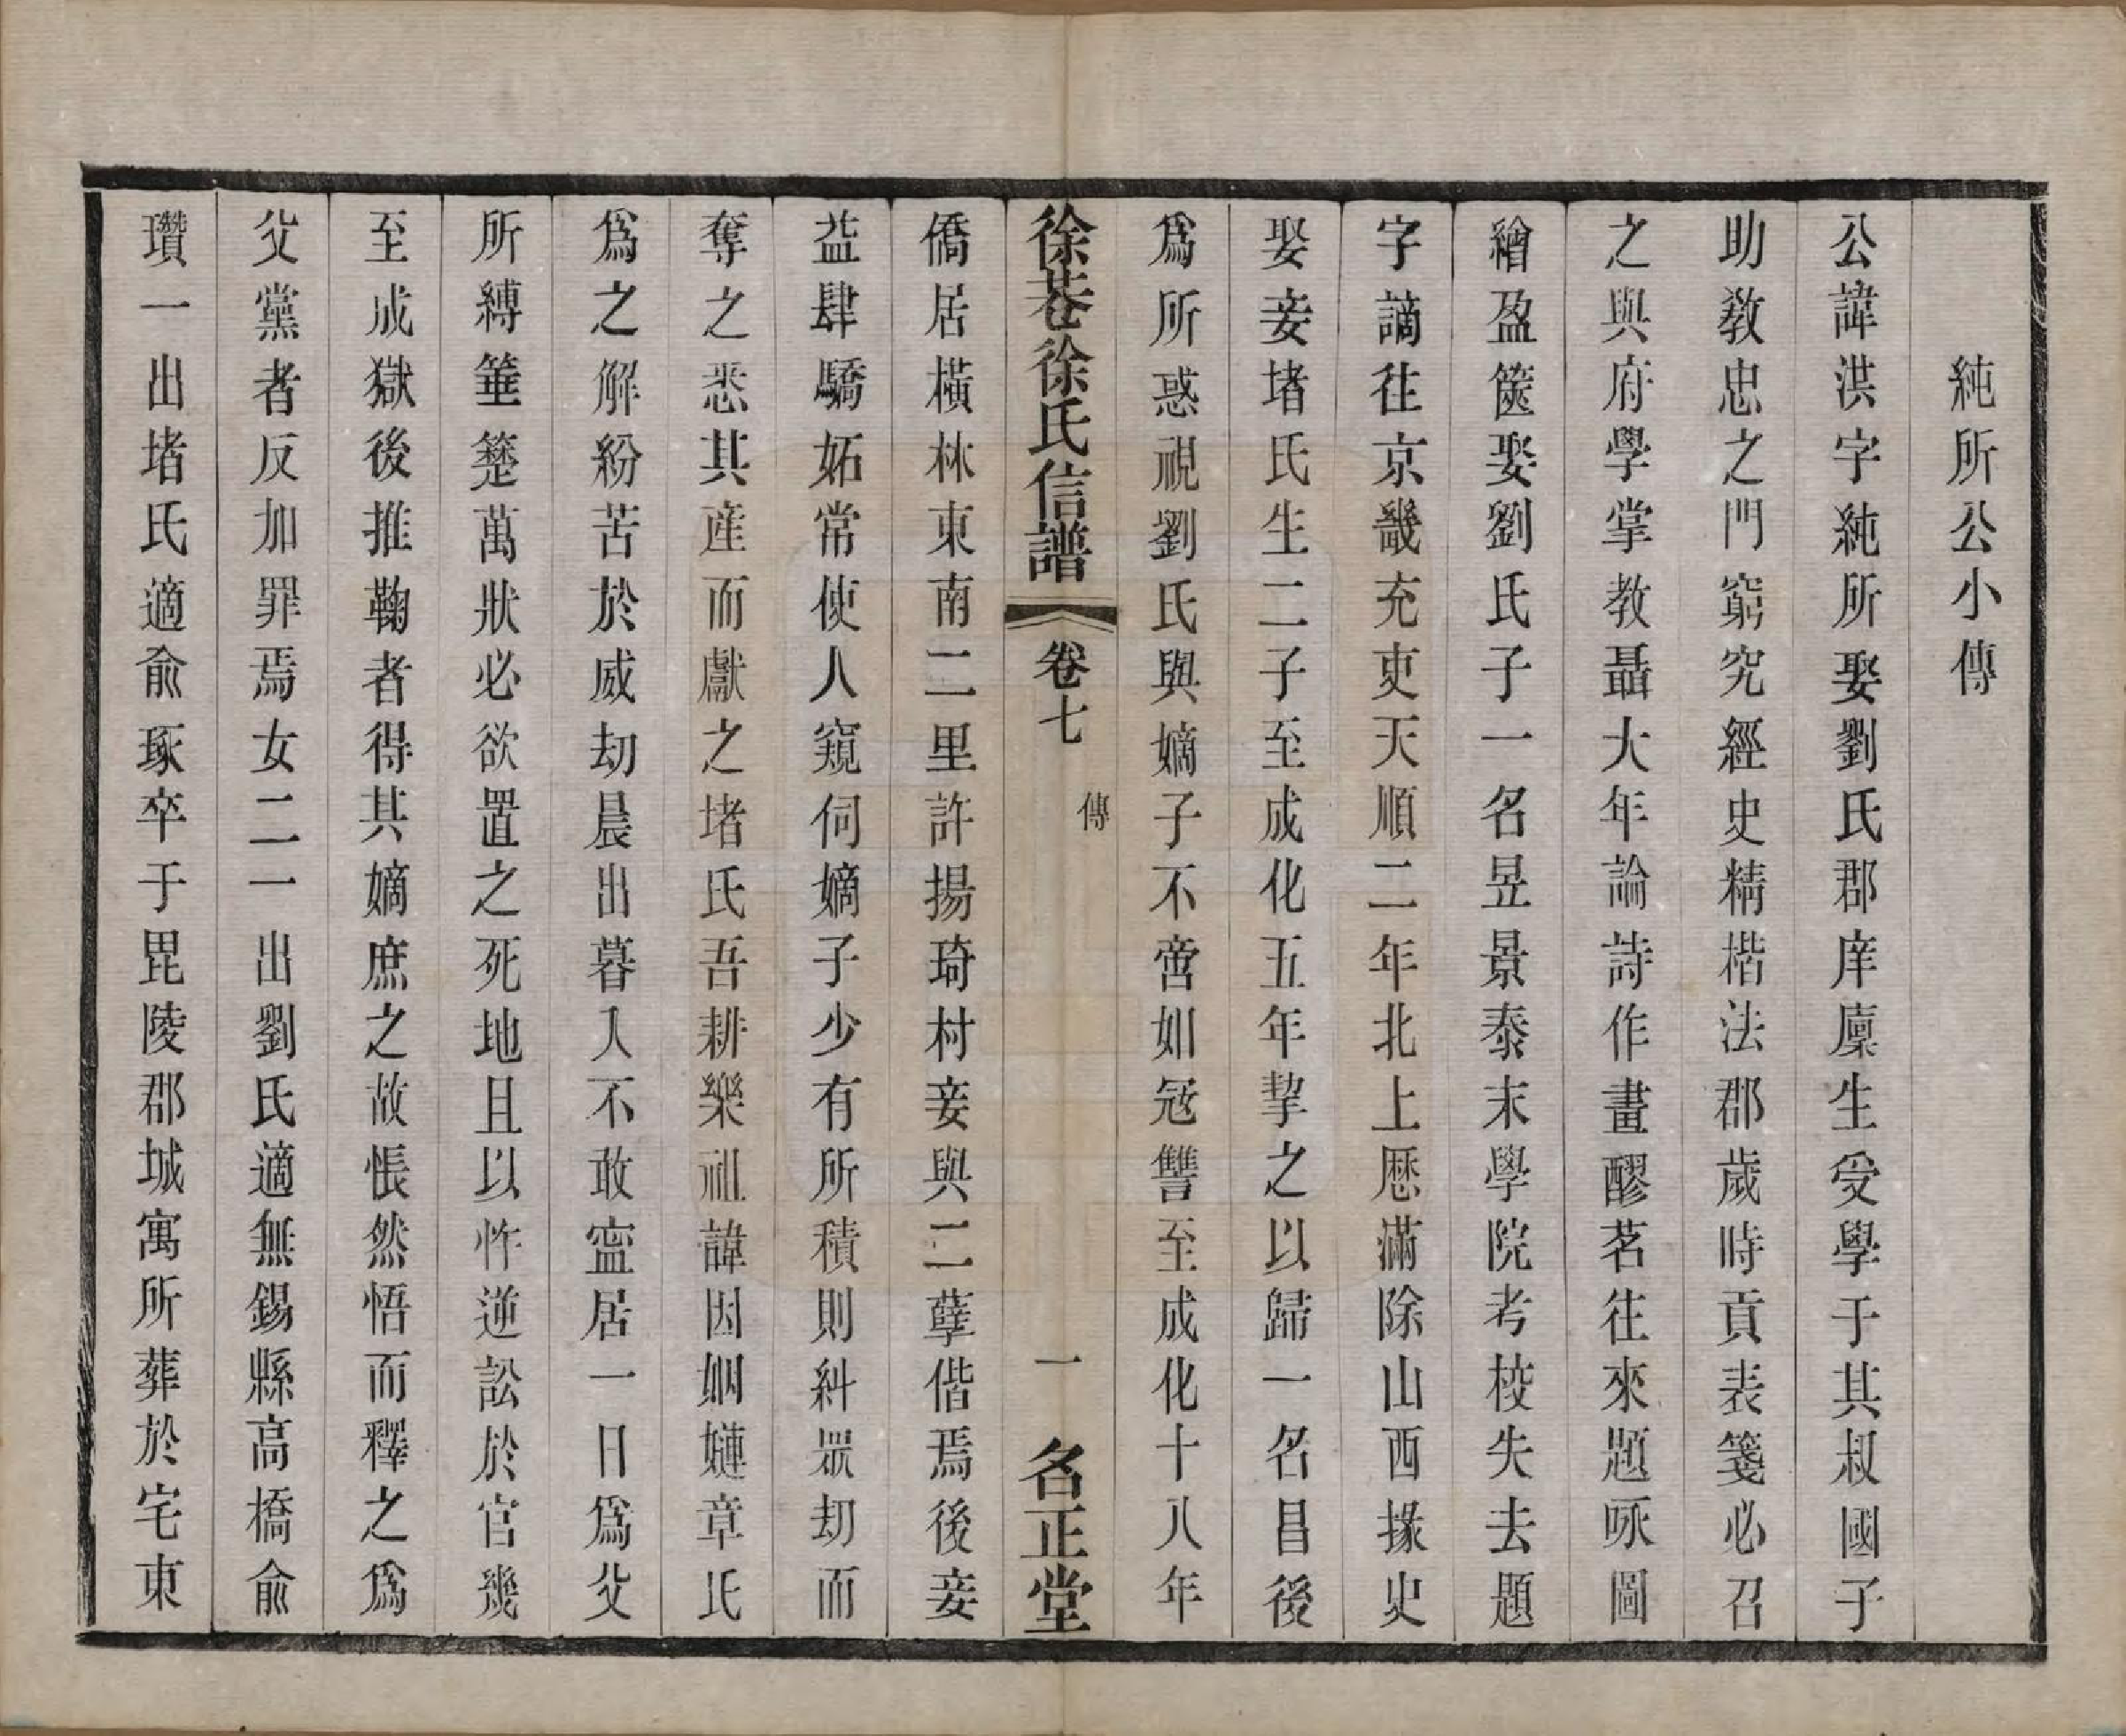 純所公小傳
公諱洪字純所娶劉氏郡庠廩生受學于其叔國子
助敎忠之門窮究經史精楷法郡歲時貢表箋必召
之與府學掌教聶大年論詩作畫醪茗往來題咏圖
繪盈篋娶劉氏子一名昱景泰末學院考校失去題
字謫往京畿充吏天順二年北上歷滿除山西掾史
娶妾堵氏生二子至成化五年挈之以歸一名昌後
爲所惑視劉氏與嫡子不啻如冦讐至成化十八年
徐巷徐氏信譜 卷七 傳 一 名正堂
僑居橫林東南二里許揚琦村妾與二孽偕焉後妾
益肆驕妬常使人窺伺嫡子少有所積則糾眾刼而
奪之悉其産而獻之堵氏吾耕樂祖諱因姻嫌章氏
爲之解紛苦於威刼晨出暮入不敢寧居一日爲父
所縛箠楚萬狀必欲置之死地且以忤逆訟於官幾
至成獄後推鞠者得其嫡庶之故悵然悟而釋之爲
父黨者反加罪焉女二一出劉氏適無錫縣高橋俞
瓚一出堵氏適俞琢卒于毘陵郡城寓所葬於宅東